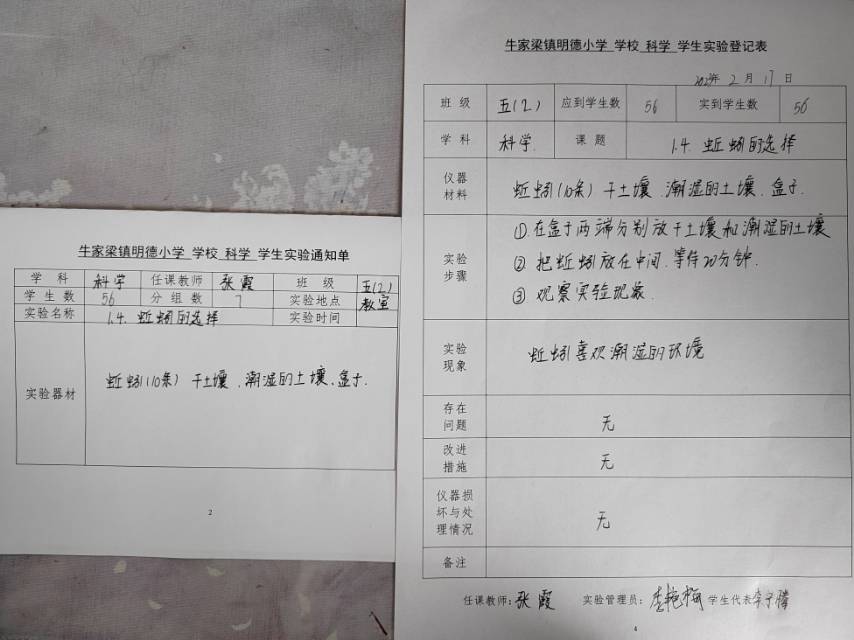 牛家梁镇明德小学 学校 科学 学生实验通知单
学 科 科学 任课教师 张霞 班 级 五(2)
学 生 数 56 分 组 数 7 实验地点 教室
实验名称 1.4. 蚯蚓的选择 实验时间
实验器材 蚯蚓(10条) 干土壤、潮湿的土壤、盒子.
2
牛家梁镇明德小学 学校 科学 学生实验登记表
2 月 17 日
班 级 五(2) 应到学生数 56 实到学生数 56
学 科 科学. 课 题 1.4. 蚯蚓的选择
仪器
材料
蚯蚓(10条) 干土壤、潮湿的土壤、盒子.
实验
步骤
①.在盒子两端分别放干土壤和潮湿的土壤
② 把蚯蚓放在中间.等待20分钟.
③ 观察实验现象.
实验
现象
蚯蚓喜欢潮湿的环境
存在
问题
无
改进
措施
无
仪器损
坏与处
理情况
无
备注
任课教师: 张霞 实验管理员: 李艳梅 学生代表
4